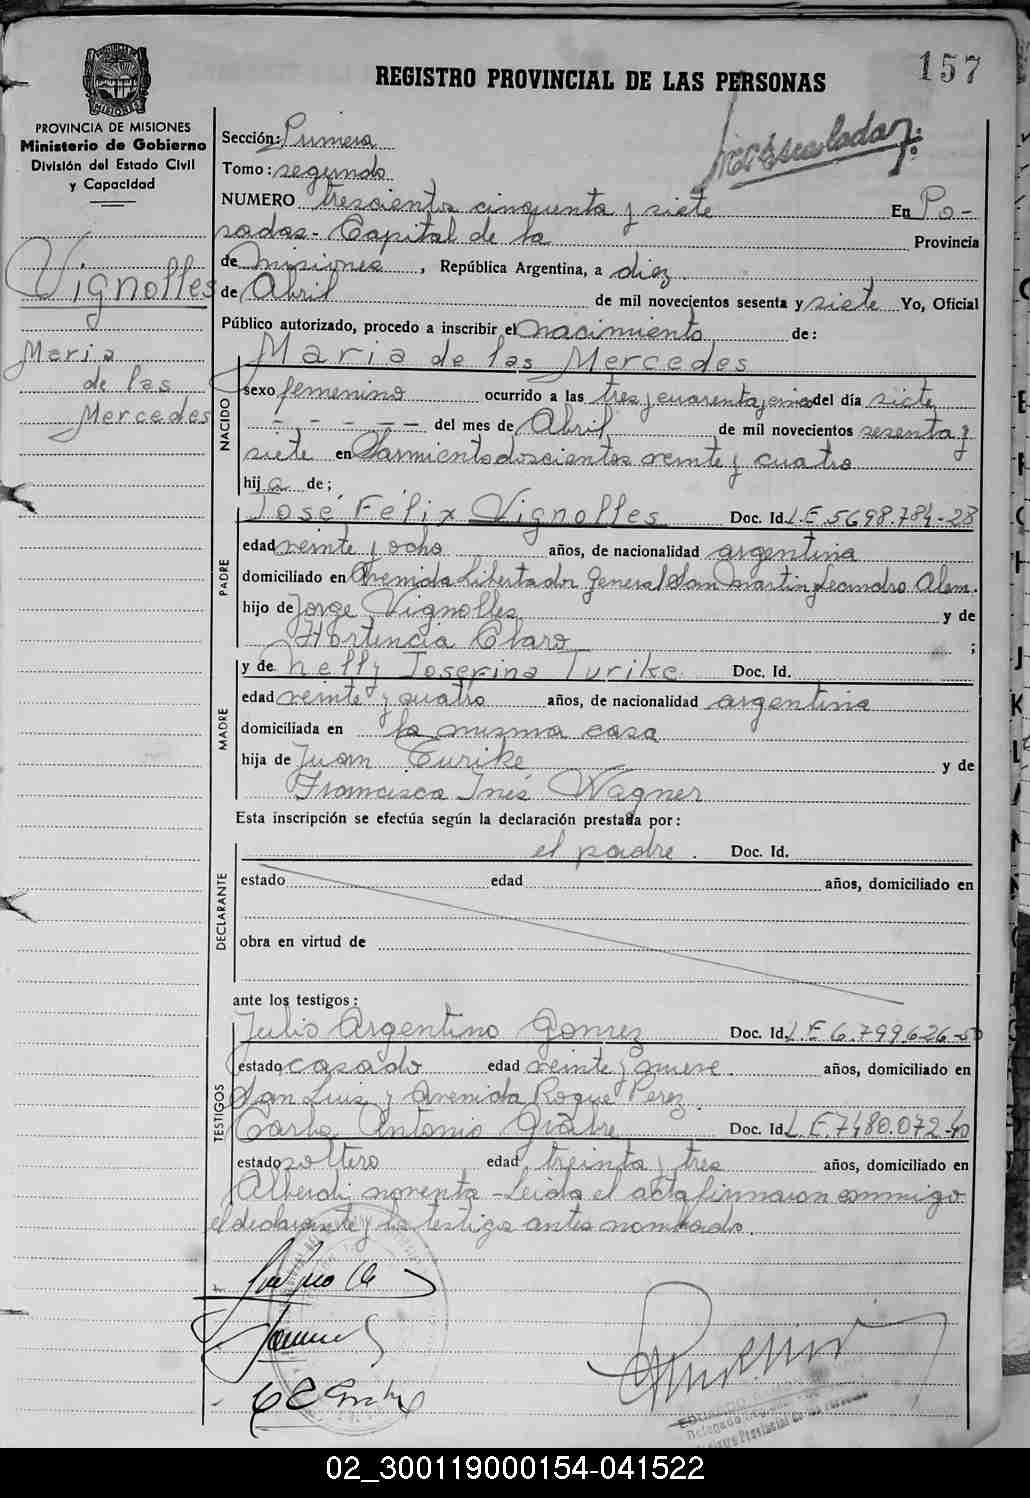 157
REGISTRO PROVINCIAL DE LAS PERSONAS
PROVINCIA DE MISIONES
Ministerio de Gobierno
División del Estado Civil
y Capacidad
Sección: Primera
Tomo: segundo
NUMERO trescientos cinquenta y siete En Po-
sadas - Capital de la Provincia
de Misiones, República Argentina, a diez
de Abril de mil novecientos sesenta y siete Yo, Oficial
Público autorizado, procedo a inscribir el nacimiento de:
Vignolles
Maria
de las
Mercedes
Maria de las Mercedes
NACIDO
sexo femenino ocurrido a las tres y cuarenta y cinco del día siete
- - - - - del mes de Abril de mil novecientos sesenta y
siete en Sarmiento doscientos veinte y cuatro
hija de;
PADRE
José Félix Vignolles Doc. Id. L.E 5698.784-28
edad veinte y ocho años, de nacionalidad argentina
domiciliado en Avenida Libertador General San Martin y Leandro Alem.
hijo de Jorge Vignolles y de
Hortencia Claro ;
MADRE
y de Nelly Josefina Turike Doc. Id.
edad veinte y cuatro años, de nacionalidad argentina
domiciliada en la misma casa
hija de Juan Turike y de
Francisca Inés Wagner
Esta inscripción se efectúa según la declaración prestada por:
DECLARANTE
el padre. Doc. Id.
estado edad años, domiciliado en
obra en virtud de
ante los testigos:
TESTIGOS
Julio Argentino Gomez Doc. Id. L.E 6.799626-
estado casado edad veinte y nueve. años, domiciliado en
San Luis y Avenida Roque Perez.
Carlos Antonio Doc. Id. L.E.7480.072-40
estado soltero edad treinta y tres años, domiciliado en
Alberdi noventa - Leida el acta firmaron conmigo
el declarante y los testigos antes nombrado.
02_300119000154-041522